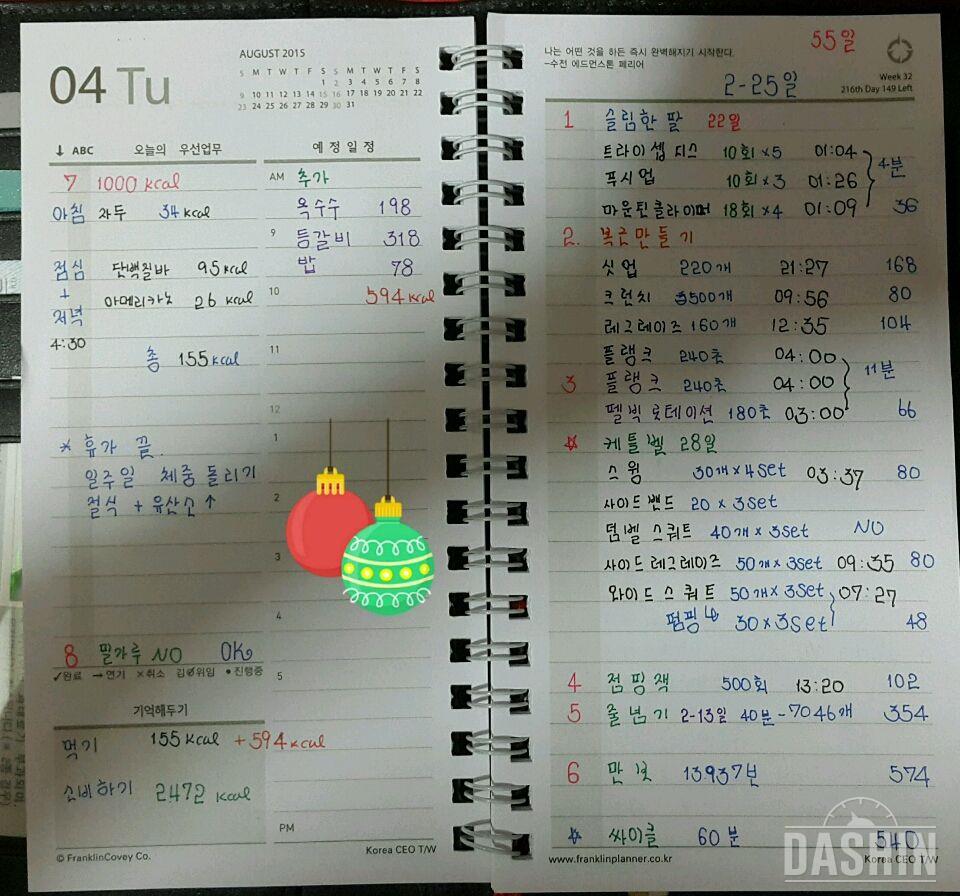 04 Tu
AUGUST 2015
S M T W T F S S M T W T F S
1 2 3 4 5 6 7 8
9 10 11 12 13 14 15 16 17 18 19 20 21 22
23 24 25 26 27 28 29 30 31
↓ ABC 오늘의 우선업무
7 1000 kcal
아침 자두 34 kcal
점심 단백질바 95 kcal
+ 아메리카노 26 kcal
저녁
4:30
총 155 kcal
* 휴가 끝.
일주일 체중 돌리기
절식 + 유산소↑
8 밀가루 NO OK
✓완료 →연기 ×취소 위임 •진행중
기억해두기
먹기 155 kcal + 594 kcal
소비하기 2472 kcal
© FranklinCovey Co.
예정일정
AM 추가
옥수수 198
9 등갈비 318
밥 78
10 594 kcal
11
12
1
2
3
4
5
PM
Korea CEO T/W
55일
나는 어떤 것을 하든 즉시 완벽해지기 시작한다.
-수전 에드먼스톤 페리어
2-25일
Week 32
216th Day 149 Left
1 슬림한 팔 22일
트라이셉 디스 10회×5 01:04
4분
푸시업 10회×3 01:26
마운틴클라이머 18회×4 01:09 36
2. 복근만들기
싯업 220개 21:27 168
크런치 500개 09:56 80
레그레이즈 160개 12:35 104
플랭크 240초 04:00
11분
3 플랭크 240초 04:00
펠빅 로테이션 180초 03:00 66
☆ 케틀벨 28일
스윙 30개×4set 03:37 80
사이드밴드 20×3set
덤벨 스쿼트 40개×3set NO
사이드레그레이즈 50개×3set 09:35 80
와이드스쿼트 50개×3set 07:27
펌핑↳ 30×3set 48
4 점핑잭 500회 13:20 102
5 줄넘기 2-13일 40분-7046개 354
6 만보 13937보 574
☆ 싸이클 60분 540
www.franklinplanner.co.kr
Korea CEO T/W
DASHIN